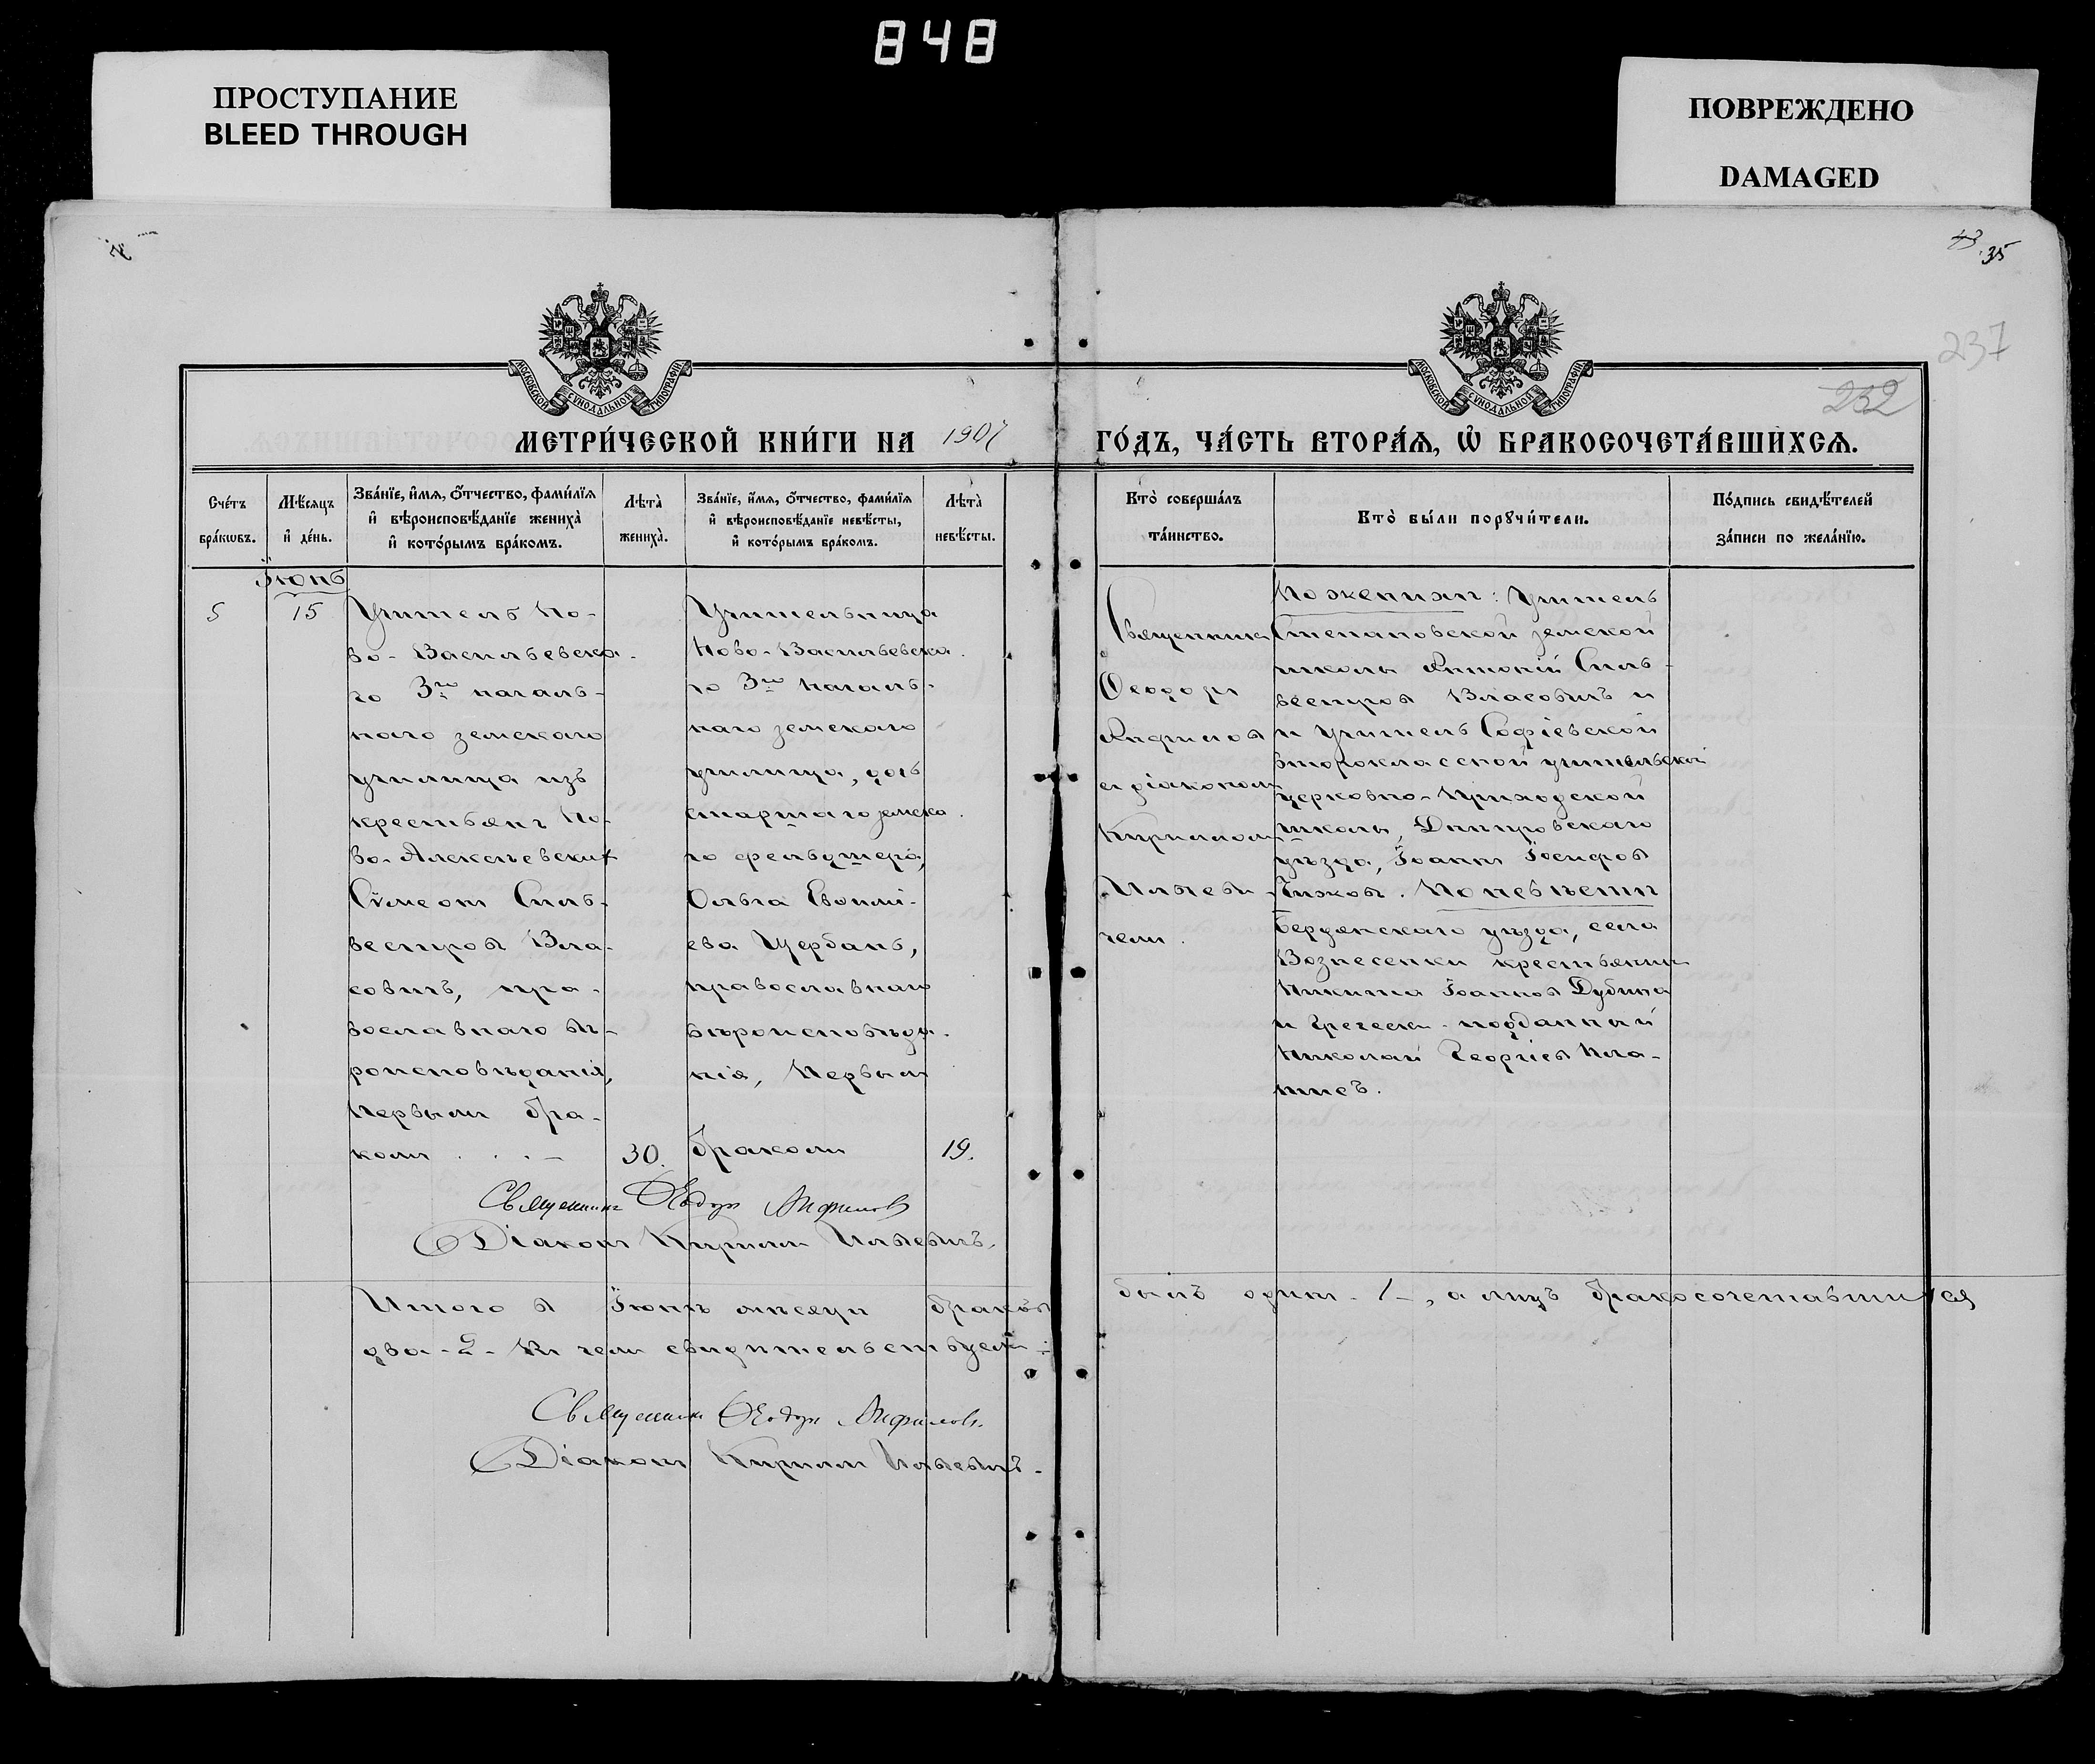 848
ПРОСТУПАНИЕ
BLEED THROUGH
ПОВРЕЖДЕНО
DAMAGED
35
237
232
МОСКОВСКОЙ СѴНОДАЛЬНОЙ ТИПОГРАФІИ
МОСКОВСКОЙ СѴНОДАЛЬНОЙ ТИПОГРАФІИ
МЕТРИ́ЧЕСКОЙ КНИ́ГИ НА 1907
ГО́ДЪ, ЧА́СТЬ ВТОРА́Ѧ, Ѡ҆ БРАКОСОЧЕТА́ВШИХСѦ.
Сче́тъ
бра́кѡвъ.
Мѣ́сяцъ
и҆ де́нь.
Зва́нїе, и҆́мѧ, ѻ҆́тчество, фами́лїѧ
и҆ вѣроисповѣ́данїе жениха̀
и҆ кото́рымъ бра́комъ.
Лѣта̀
жениха̀.
Зва́нїе, и҆́мѧ, ѻ҆́тчество, фами́лїѧ
и҆ вѣроисповѣ́данїе невѣ́сты,
и҆ кото́рымъ бра́комъ.
Лѣта̀
невѣ́сты.
Кто̀ соверша́лъ
та́инство.
Кто̀ бы́ли порꙋчи́тели.
По́дпись свидѣ́телей
за́писи по жела́нїю.
Іюнь
5
15
Учитель Но-
во-Васильевска-
го 3го началь-
наго земскаго
училища изъ
крестьянъ Но-
во-Алексѣевски
Сѵмеонъ Силь-
вестровъ Вла-
совичъ, пра-
вославнаго вѣ-
роисповѣданія,
первымъ бра-
комъ . . . –
30.
Учительница
Ново-Васильевска-
го 3го началь-
наго земскаго
училища, дочь
старшаго земска-
го фельдшера,
Ольга Евѳимі-
ева Щербань,
православнаго
вѣроисповѣда-
нія, первымъ
бракомъ
19.
Священникъ
Ѳеодоръ
Анфиловъ
съ діакономъ
Кирилломъ
Ильеви-
чемъ.
По женихѣ: Учитель
Степановской земской
школы Антоній Силь-
вестровъ Власовичъ и
и учитель Софіевской
второклассной учительской
церковно-приходской
школы, Днѣпровскаго
уѣзда, Іоаннъ Іосифовъ
Чижовъ. По невѣстѣ
Бердянскаго уѣзда, села
Вознесенки крестьянинъ
Никита Іоанновъ Дубина
и Греческ-подданный
Николай Георгіевъ Пла-
тисъ.
Священникъ Ѳеодоръ Анфиловъ
Діаконъ Кириллъ Ильевичъ.
Итого въ Іюнѣ мѣсяцѣ браковъ былъ одинъ -1-, а лицъ бракосочетавшихся
два -2- Въ чемъ свидѣтельствуемъ:
Священникъ Ѳеодоръ Анфиловъ.
Діаконъ Кириллъ Ильевичъ.